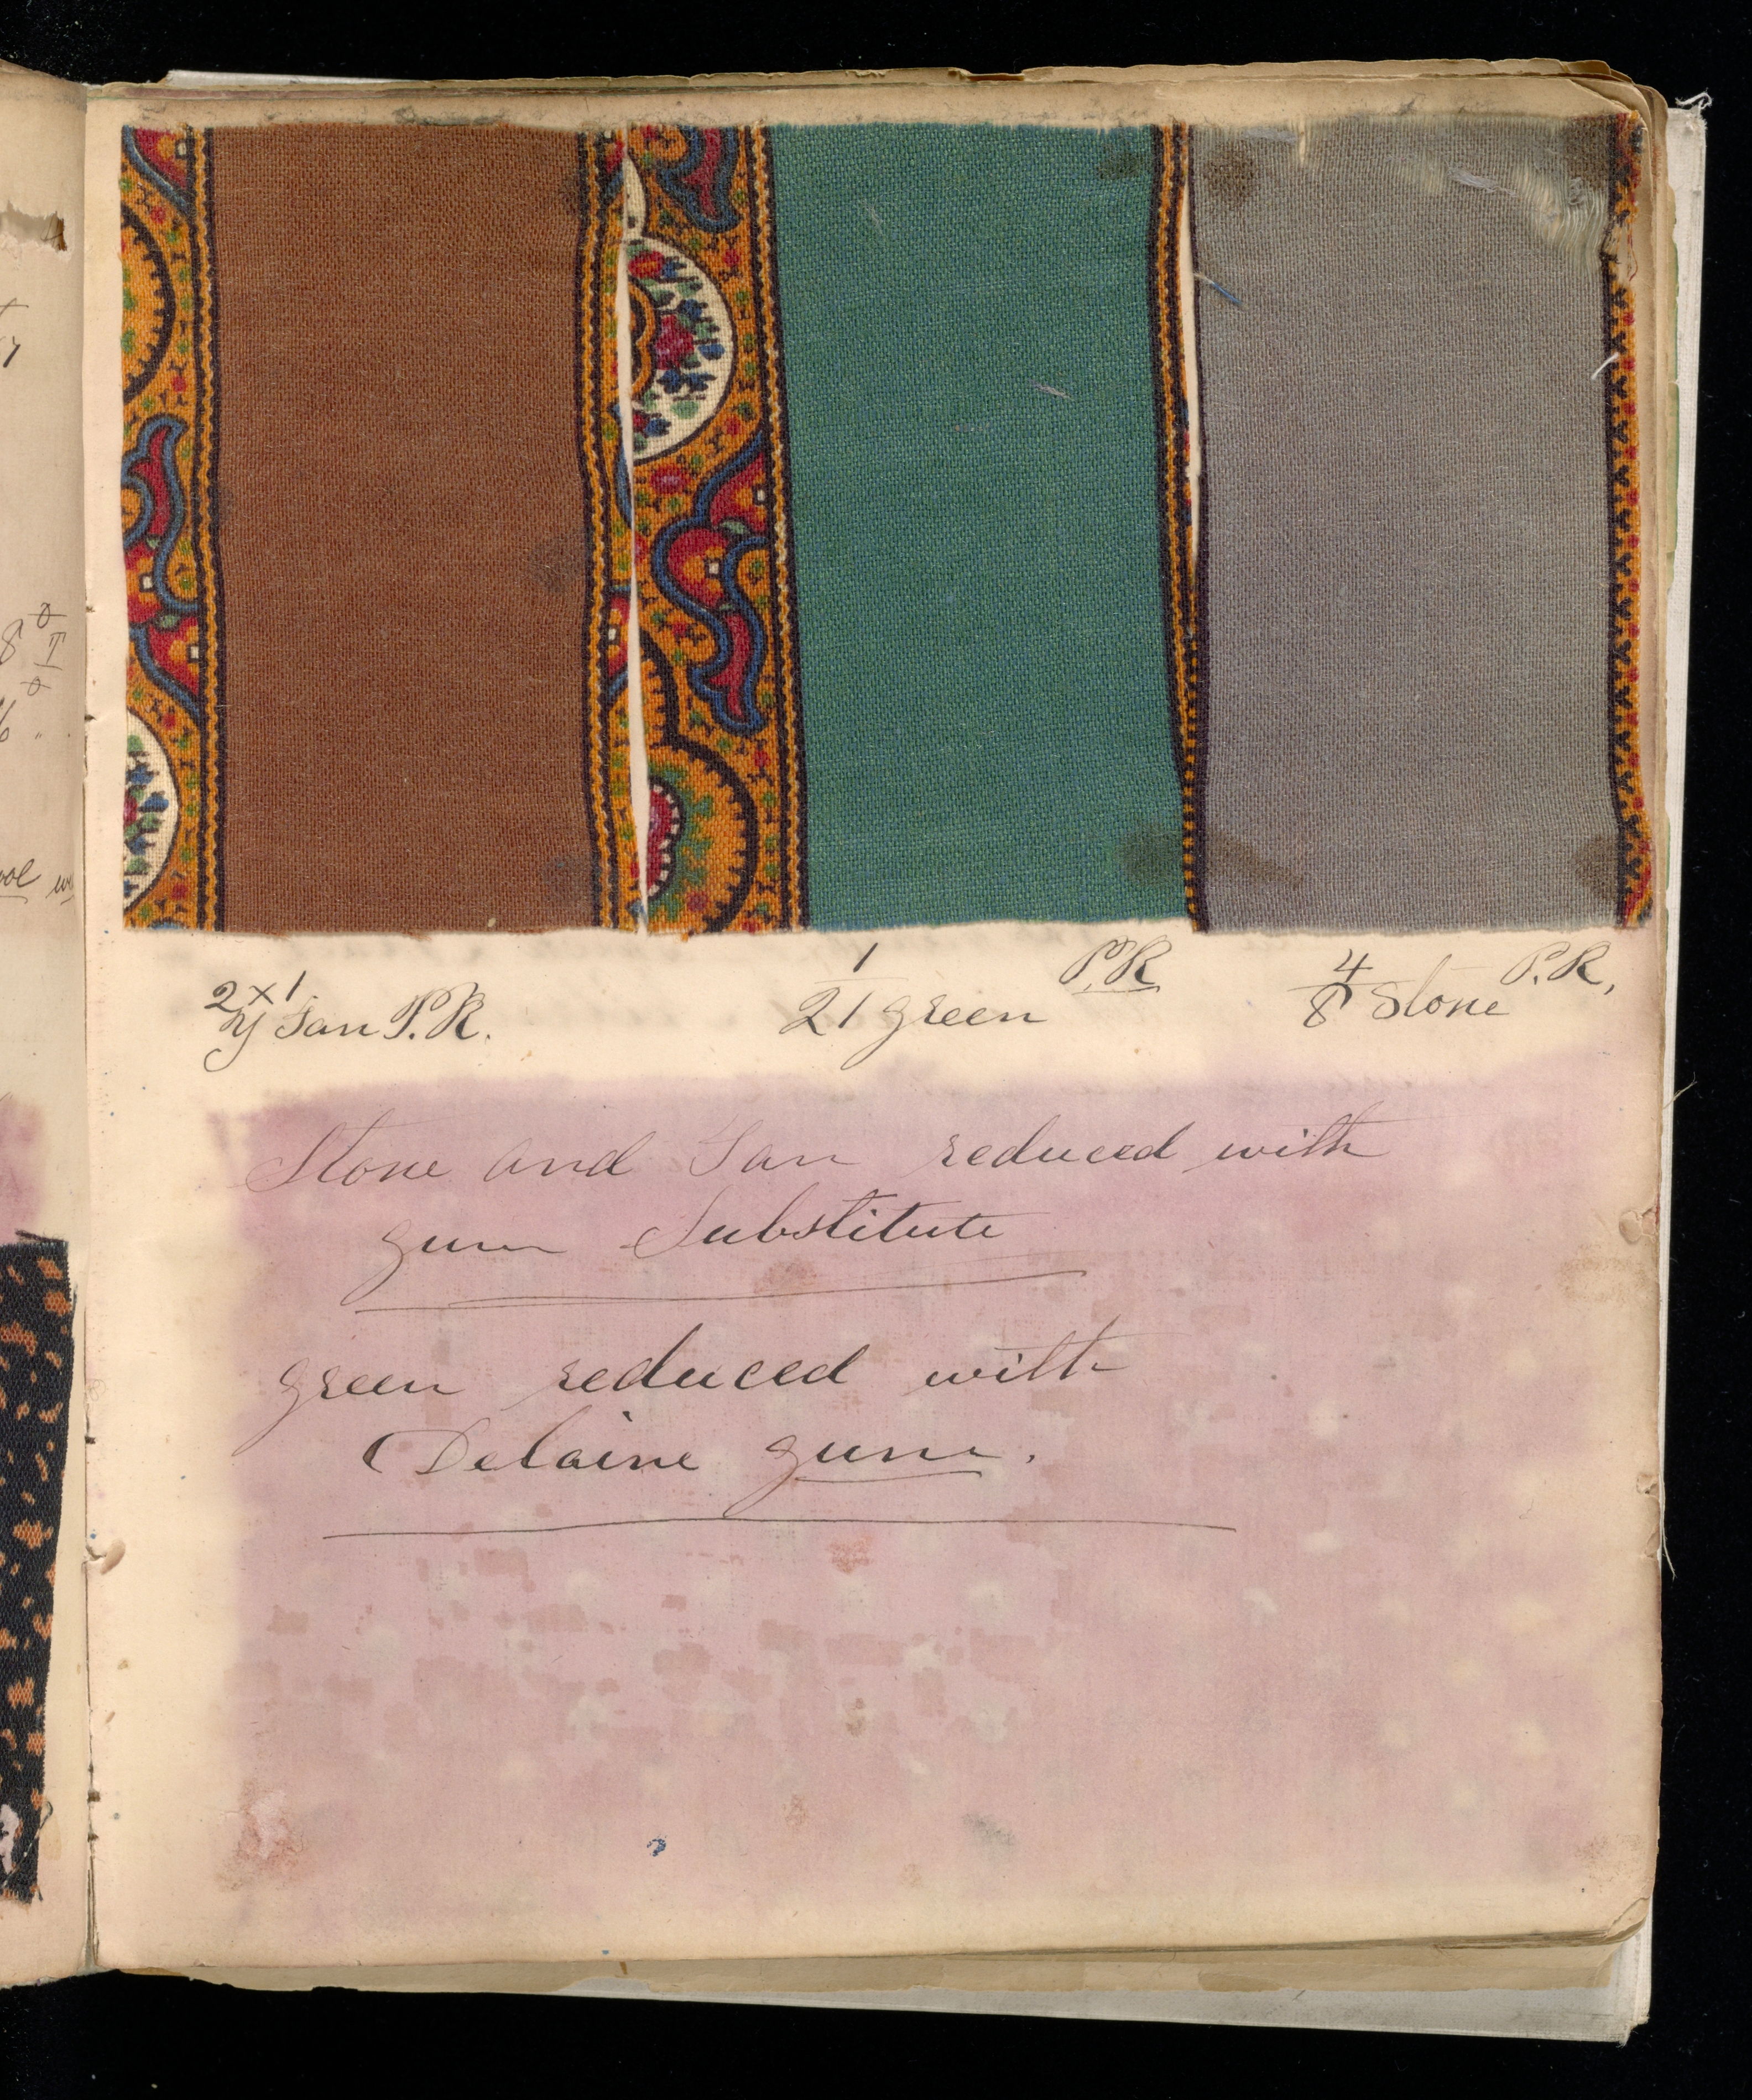 2 x 1
y Tan P.R.
1
21 green P.R.
4
8 Stone P.R.,
Stone and Tan reduced with
gum Substitute
green reduced with
Delaine gum.